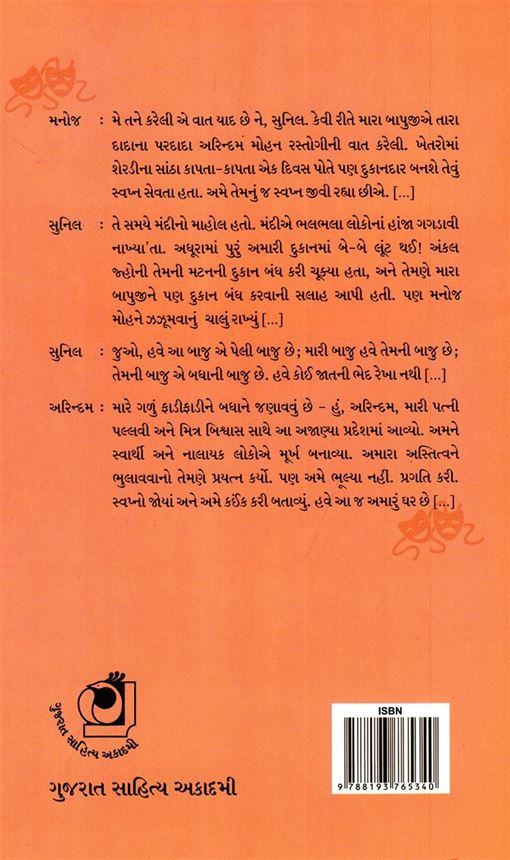 મનોજ : મે તને કરેલી એ વાત યાદ છે ને, સુનિલ. કેવી રીતે મારા બાપુજીએ તારા
દાદાના પરદાદા અરિન્દમ મોહન રસ્તોગીની વાત કરેલી. ખેતરોમાં
શેરડીના સાંઠા કાપતા-કાપતા એક દિવસ પોતે પણ દુકાનદાર બનશે તેવું
સ્વપ્ન સેવતા હતા. અમે તેમનું જ સ્વપ્ન જીવી રહ્યા છીએ. [...]
સુનિલ : તે સમયે મંદીનો માહોલ હતો. મંદીએ ભલભલા લોકોનાં હાંજા ગગડાવી
નાખ્યા'તા. અધૂરામાં પુરું અમારી દુકાનમાં બે-બે લૂંટ થઈ! અંકલ
જ્હોની તેમની મટનની દુકાન બંધ કરી ચૂક્યા હતા, અને તેમણે મારા
બાપુજીને પણ દુકાન બંધ કરવાની સલાહ આપી હતી. પણ મનોજ
મોહને ઝઝૂમવાનું ચાલું રાખ્યું [...]
સુનિલ : જુઓ, હવે આ બાજુ એ પેલી બાજુ છે; મારી બાજુ હવે તેમની બાજુ છે;
તેમની બાજુ એ બધાની બાજુ છે. હવે કોઈ જાતની ભેદ રેખા નથી [...]
અરિન્દમ : મારે ગળું ફાડીફાડીને બધાને જણાવવું છે - હું, અરિન્દમ, મારી પત્ની
પલ્લવી અને મિત્ર બિશ્વાસ સાથે આ અજાણ્યા પ્રદેશમાં આવ્યો. અમને
સ્વાર્થી અને નાલાયક લોકોએ મૂર્ખ બનાવ્યા. અમારા અસ્તિત્વને
ભુલાવવાનો તેમણે પ્રયત્ન કર્યો. પણ અમે ભૂલ્યા નહીં. પ્રગતિ કરી.
સ્વપ્નો જોયાં અને અમે કઈંક કરી બતાવ્યું. હવે આ જ અમારું ઘર છે [...]
ગુજરાત સાહિત્ય અકાદમી
ગુજરાત સાહિત્ય અકાદમી
ISBN
9 788193 765340